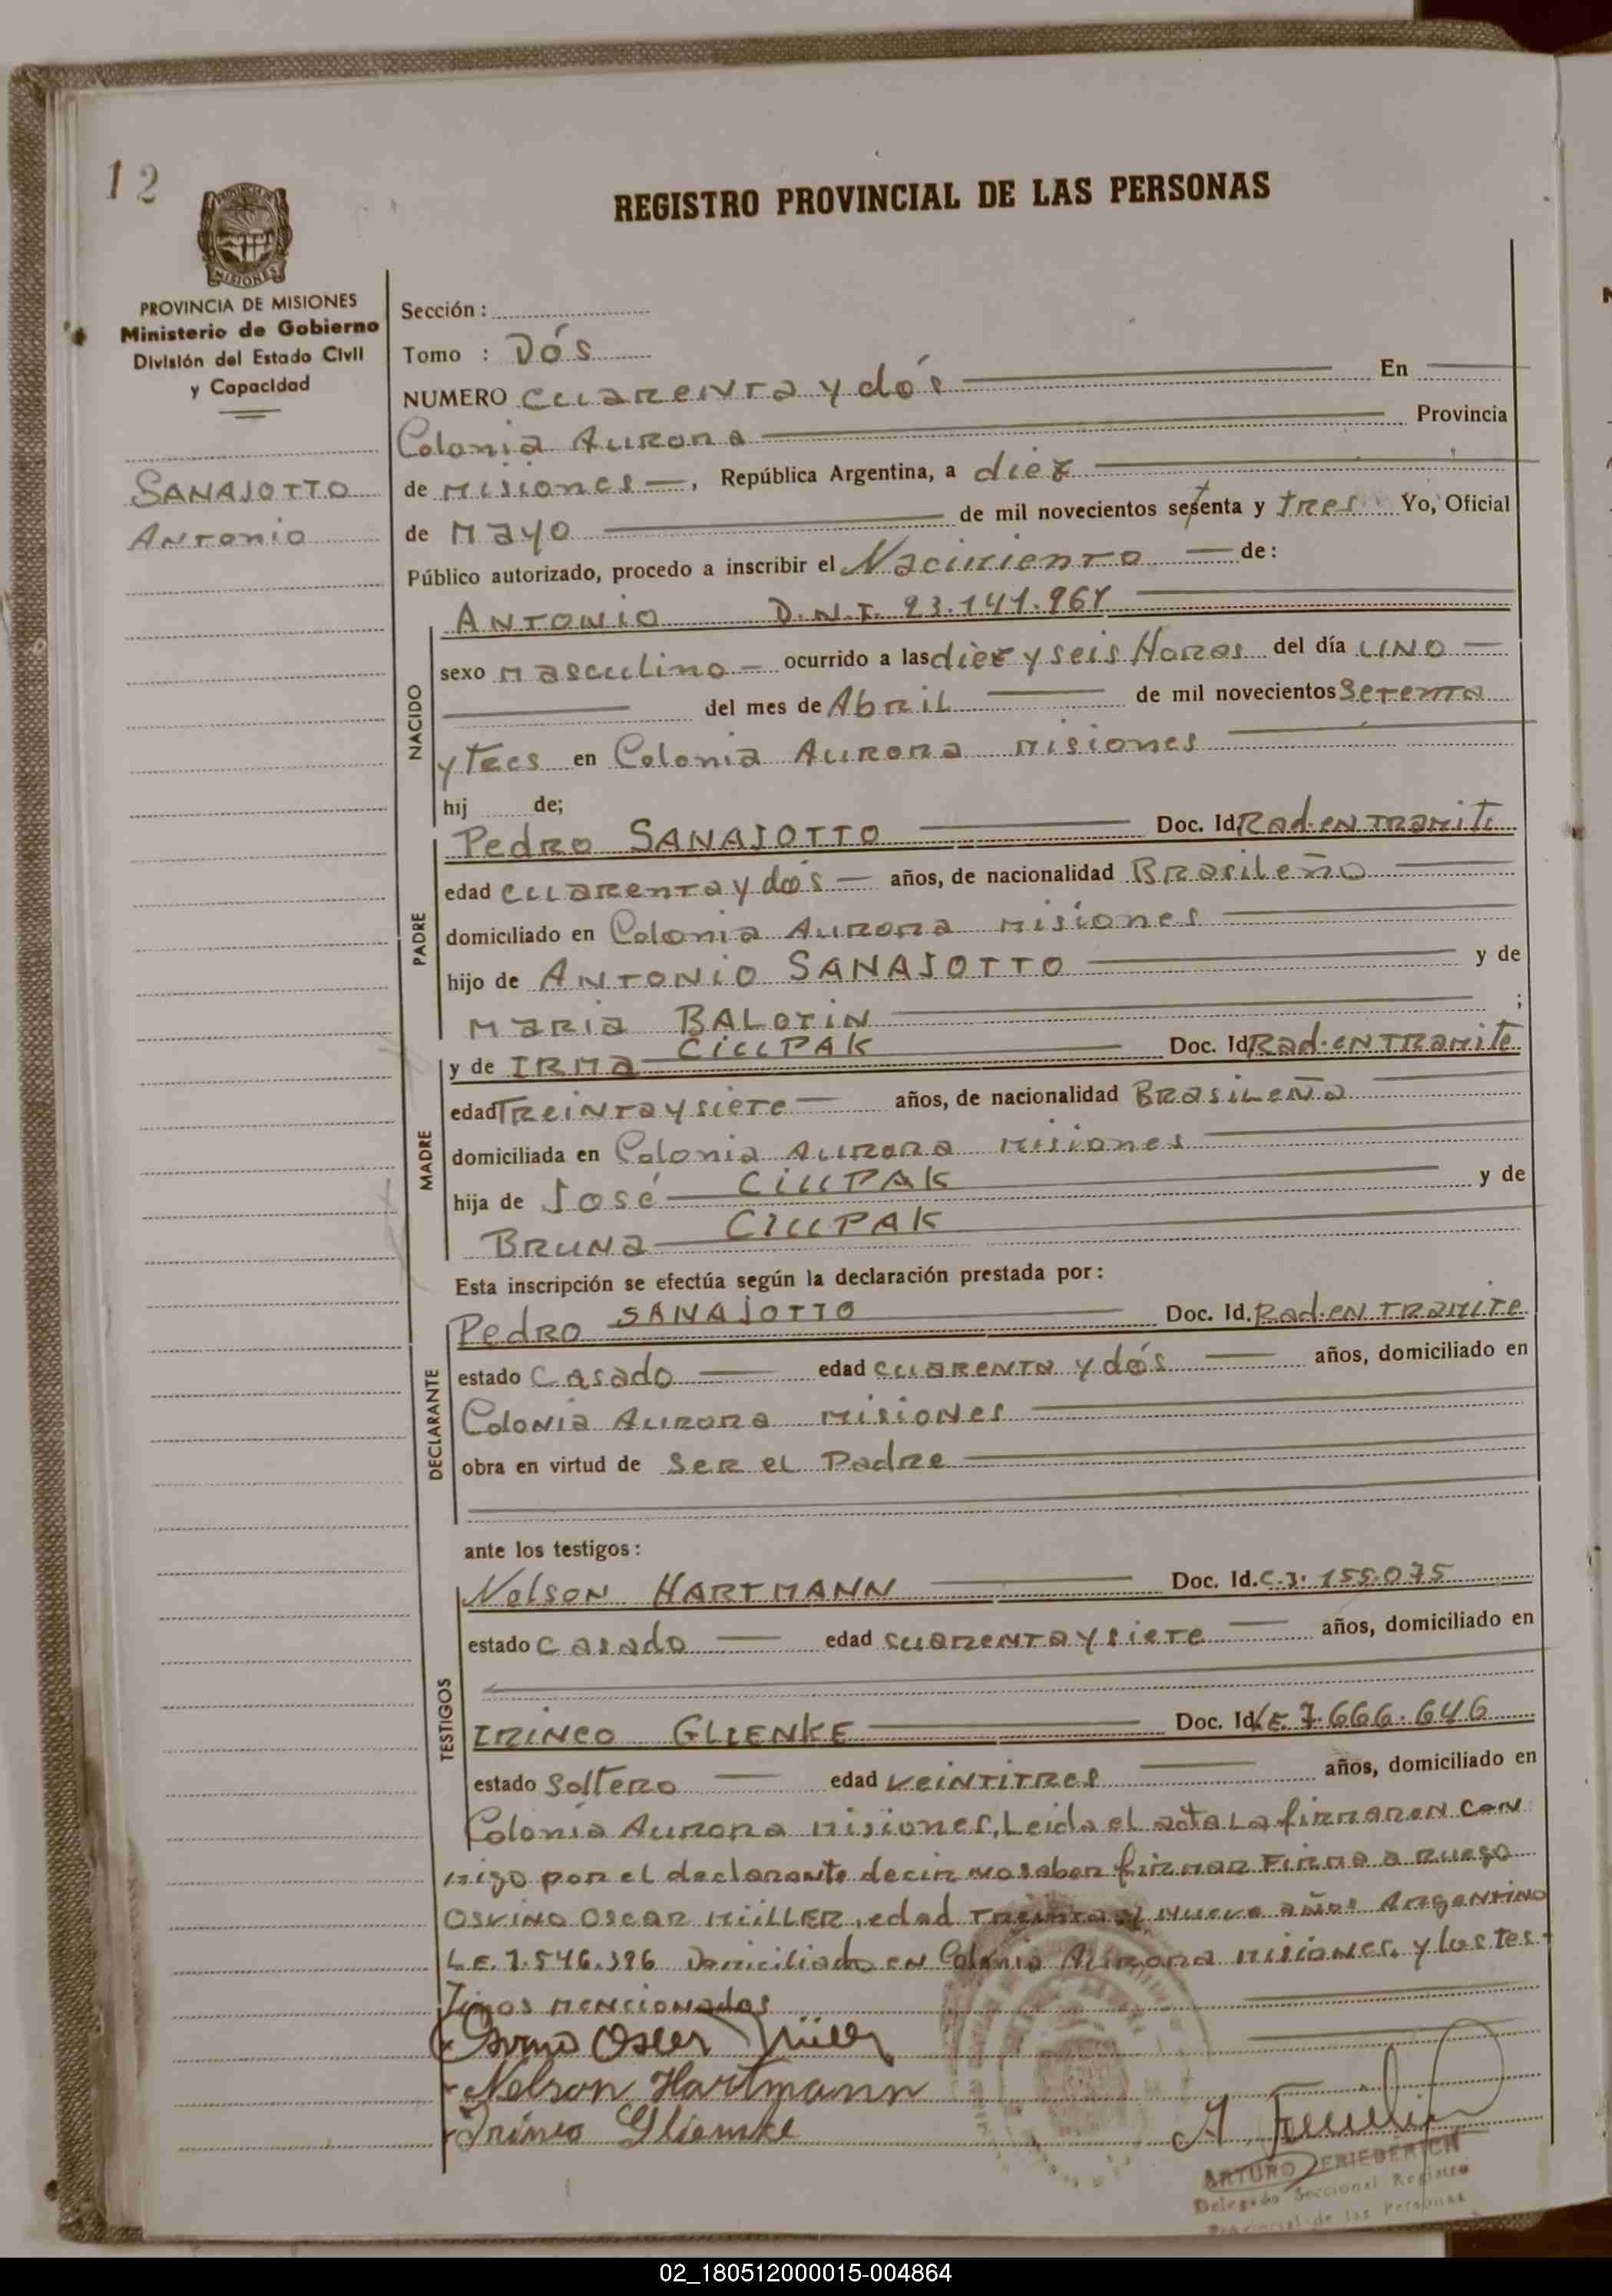 12
REGISTRO PROVINCIAL DE LAS PERSONAS
MISIONES
PROVINCIA DE MISIONES
Ministerio de Gobierno
División del Estado Civil
y Capacidad
SANAJOTTO
Antonio
Sección :
Tomo : Dós
NUMERO cuarenta y dós En
Colonia Aurora Provincia
de misiones, República Argentina, a diez
de Mayo de mil novecientos setenta y tres Yo, Oficial
Público autorizado, procedo a inscribir el Nacimiento de:
NACIDO
ANTONIO D.N.I. 23.141.967
sexo masculino ocurrido a las diez y seis Horas del día UNO
del mes de Abril de mil novecientos Setenta
y Tres en Colonia Aurora misiones
hij de;
PADRE
Pedro SANAJOTTO Doc. Id. Rad. en Tramite
edad cuarenta y dós años, de nacionalidad Brasileño
domiciliado en Colonia Aurora misiones
hijo de ANTONIO SANAJOTTO y de
Maria BALOTIN ;
MADRE
y de IRMA CIUPAK Doc. Id. Rad. en Tramite
edad Treinta y siete años, de nacionalidad Brasileña
domiciliada en Colonia Aurora misiones
hija de José CIUPAK y de
Bruna CIUPAK
Esta inscripción se efectúa según la declaración prestada por:
DECLARANTE
Pedro SANAJOTTO Doc. Id. Rad. en Tramite
estado Casado edad cuarenta y dós años, domiciliado en
Colonia Aurora misiones
obra en virtud de Ser el Padre
ante los testigos:
TESTIGOS
Nelson HARTMANN Doc. Id. C.I. 155.075
estado casado edad cuarenta y siete años, domiciliado en
IRINEO GLIENKE Doc. Id. L.E. 7.666.646
estado Soltero edad veintitres años, domiciliado en
Colonia Aurora misiones, Leida el acta La firmaron con
migo por el declarante decir no saber firmar Firma a Ruego
OSVINO OSCAR MÜLLER, edad Treinta y nueve años Argentino
L.E. 7.546.396 Domiciliado en Colonia Aurora misiones, y los tes-
tigos mencionados
Osvino Oscar Müller
Nelson Hartmann
Irineo Glienke
ARTURO FRIEDERICH
Delegado Seccional Registro
Provincial de las Personas
02_180512000015-004864